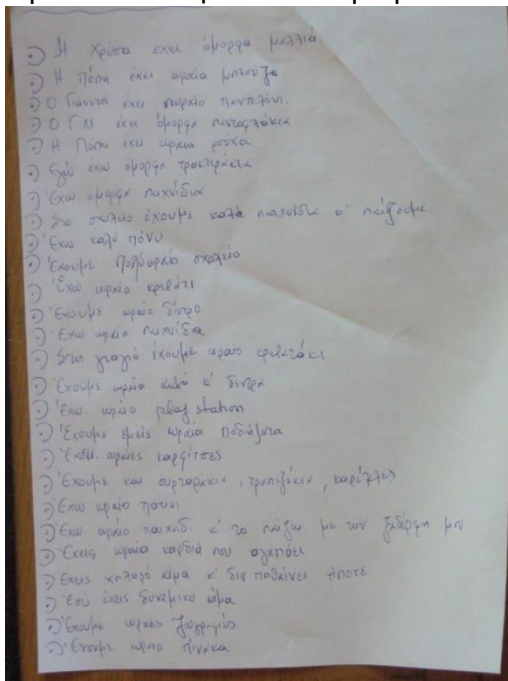 Η Χρύσα έχει όμορφα μαλλιά
Η Πόπη έχει ωραία μπλούζα
Ο Γιάννης έχει ωραίο παντελόνι.
Ο Γ.Μ έχει όμορφα
Η Πόπη έχει ωραία ρούχα
Εγώ έχω όμορφα τρακτεράκια
Έχω όμορφα παιχνίδια
Στο σχολείο έχουμε καλά παιχνίδια κ' παίζουμε
Έχω καλό πόνυ
Έχουμε πολύ ωραίο σχολείο
Έχω ωραίο κρεβάτι
Έχουμε ωραίο δέντρο
Έχω ωραίο παιχνίδια
Στη γιαγιά έχουμε ωραίο κρεβατάκι
Έχουμε ωραία κ' δέντρα
Έχω ωραίο play station
Έχουμε εμείς ωραία ποδήλατα
ωραίες καρφίτσες
Έχουμε και συρταράκια, τραπεζάκια, καρέκλες
Έχω ωραίο πατίνι
Έχω ωραίο παιχνίδι κ' το παίζω με την ξαδέρφη μου
Έχεις ωραία καρδιά που αγαπάει
Έχεις καλό αίμα κ' δεν παθαίνει τίποτε
Εσύ έχεις δυναμικό αίμα
Έχουμε ωραίες ζωγραφιές
Έχουμε ωραίο πίνακα